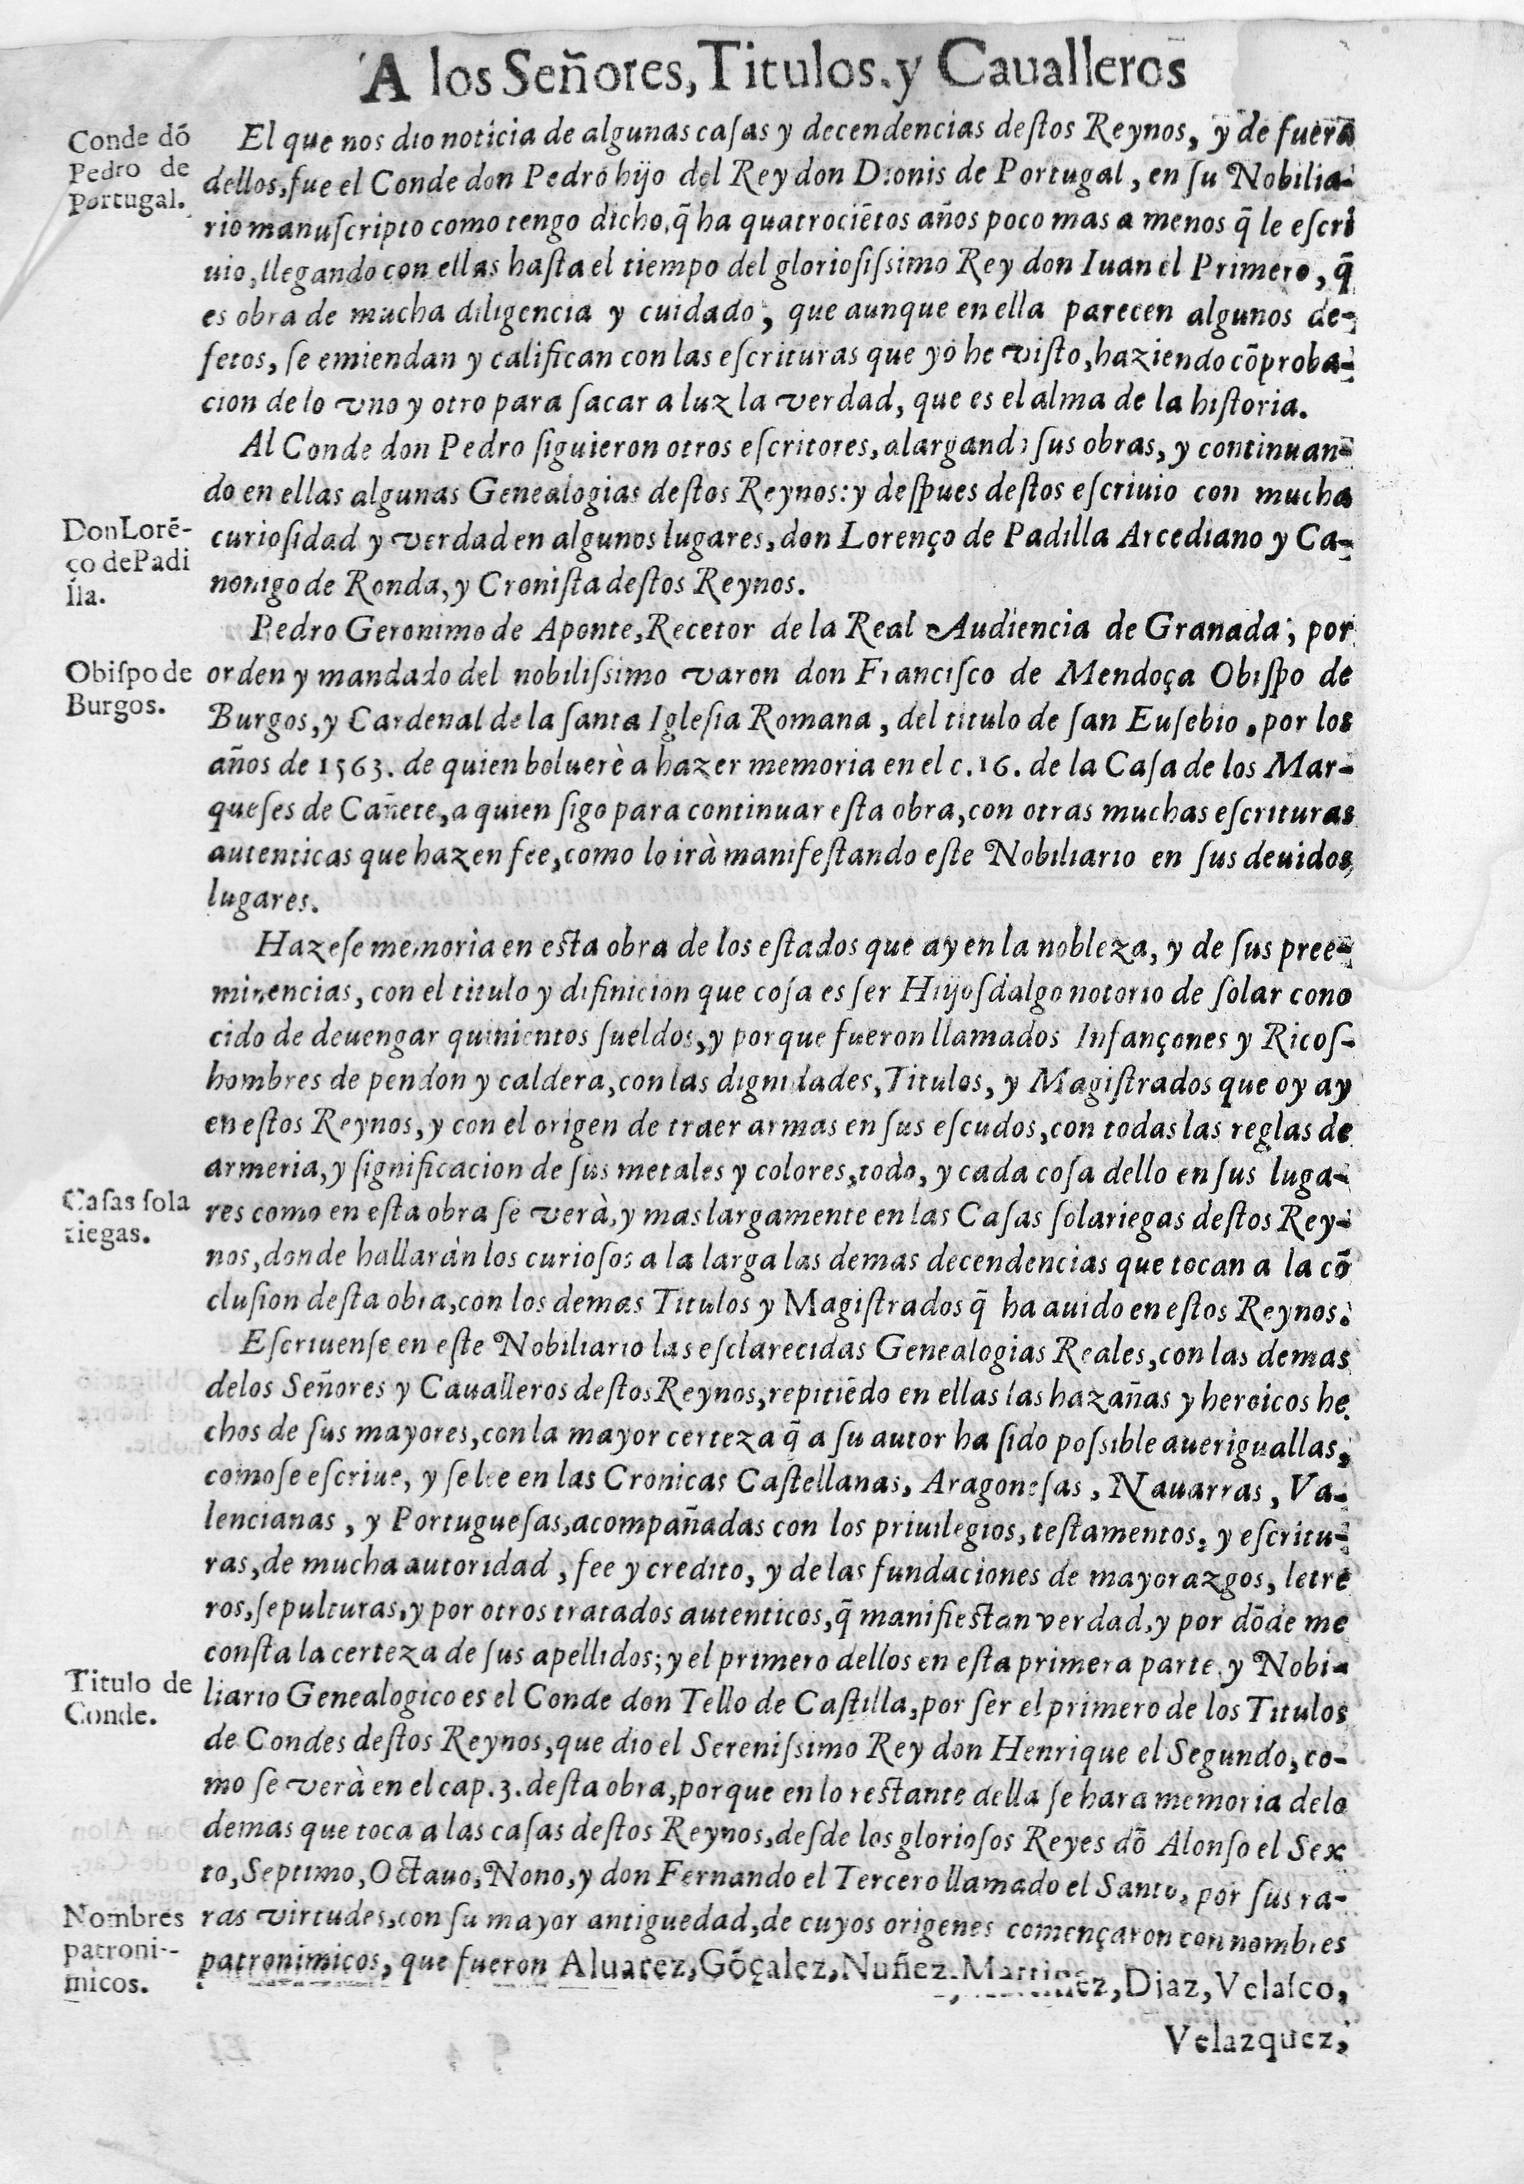 A los Señores, Titulos, y Caualleros
Conde dõ
Pedro de
Portugal.
El que nos dio noticia de algunas casas y decendencias destos Reynos, y de fuera
dellos, fue el Conde don Pedro hijo del Rey don Dionis de Portugal, en su Nobilia-
rio manuscripto como tengo dicho, q̃ ha quatrociẽtos años poco mas a menos q̃ le escri
uio, llegando con ellas hasta el tiempo del gloriosissimo Rey don Iuan el Primero, q̃
es obra de mucha diligencia y cuidado, que aunque en ella parecen algunos de-
fetos, se emiendan y califican con las escrituras que yo he visto, haziendo cõproba-
cion de lo vno y otro para sacar a luz la verdad, que es el alma de la historia.
Al Conde don Pedro siguieron otros escritores, alargando sus obras, y continuan-
do en ellas algunas Genealogias destos Reynos: y despues destos escriuio con mucha
Don Lorẽ-
ço de Padi
lla.
curiosidad y verdad en algunos lugares, don Lorenço de Padilla Arcediano y Ca-
nonigo de Ronda, y Cronista destos Reynos.
Pedro Geronimo de Aponte, Recetor de la Real Audiencia de Granada; por
Obispo de
Burgos.
orden y mandado del nobilissimo varon don Francisco de Mendoça Obispo de
Burgos, y Cardenal de la santa Iglesia Romana, del titulo de san Eusebio, por los
años de 1563. de quien boluerè a hazer memoria en el c. 16. de la Casa de los Mar-
queses de Cañete, a quien sigo para continuar esta obra, con otras muchas escrituras
autenticas que hazen fee, como lo irà manifestando este Nobiliario en sus deuidos
lugares.
Hazese memoria en esta obra de los estados que ay en la nobleza, y de sus pree-
minencias, con el titulo y difinicion que cosa es ser Hijosdalgo notorio de solar cono
cido de deuengar quinientos sueldos, y porque fueron llamados Infançones y Ricos-
hombres de pendon y caldera, con las dignidades, Titulos, y Magistrados que oy ay
en estos Reynos, y con el origen de traer armas en sus escudos, con todas las reglas de
armeria, y significacion de sus metales y colores, todo, y cada cosa dello en sus luga-
Casas sola
riegas.
res como en esta obra se verà, y mas largamente en las Casas solariegas destos Rey-
nos, donde hallaràn los curiosos a la larga las demas decendencias que tocan a la cõ
clusion desta obra, con los demas Titulos y Magistrados q̃ ha auido en estos Reynos.
Escriuense en este Nobiliario las esclarecidas Genealogias Reales, con las demas
delos Señores y Caualleros destos Reynos, repitiẽdo en ellas las hazañas y heroicos he
chos de sus mayores, con la mayor certeza q̃ a su autor ha sido possible aueriguallas,
como se escriue, y se lee en las Cronicas Castellanas, Aragonesas, Nauarras, Va-
lencianas, y Portuguesas, acompañadas con los priuilegios, testamentos, y escritu-
ras, de mucha autoridad, fee y credito, y de las fundaciones de mayorazgos, letre
ros, sepulturas, y por otros tratados autenticos, q̃ manifiestan verdad, y por dõde me
consta la certeza de sus apellidos; y el primero dellos en esta primera parte, y Nobi-
Titulo de
Conde.
liario Genealogico es el Conde don Tello de Castilla, por ser el primero de los Titulos
de Condes destos Reynos, que dio el Serenissimo Rey don Henrique el Segundo, co-
mo se verà en el cap. 3. desta obra, porque en lo restante della se hara memoria delo
demas que toca a las casas destos Reynos, desde los gloriosos Reyes dõ Alonso el Sex
to, Septimo, Octauo, Nono, y don Fernando el Tercero llamado el Santo, por sus ra-
Nombres
patroni-
micos.
ras virtudes, con su mayor antiguedad, de cuyos origenes començaron con nombres
patronimicos, que fueron Aluarez, Gõçalez, Nuñez, Martinez, Diaz, Velasco,
Velazquez,